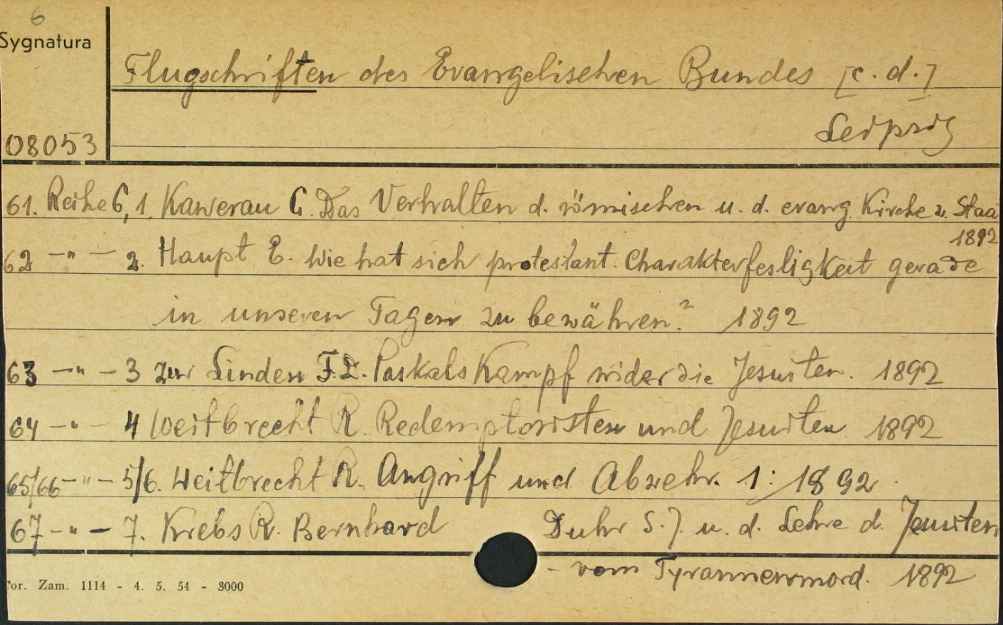 6
Sygnatura
Flugschriften des Evangelischen Bundes [c.d.]
Leipzig
08053
61. Reihe 6, 1. Kawerau G. Das Verhalten d. römischen u. d. evang. Kirche z. Staa
1892
62 -"- 2. Haupt E. Wie hat sich protestant. Charakterfestigkeit gerade
in unseren Tagen zu bewähren? 1892
63 -"- 3 Zur Linden F.L. Paskals Kampf wider die Jesuiten. 1892
64 -"- 4 Weitbrecht R. Redemptoristen und Jesuiten 1892
65/66 -"- 5/6. Weitbrecht R. Angriff und Abwehr. 1: 1892.
67 -"- 7. Krebs R. Bernhard Duhr S.J. u. d. Lehre d. Jesuiten
- vom Tyrannenmord. 1892
or. Zam. 1114 - 4. 5. 54 - 3000